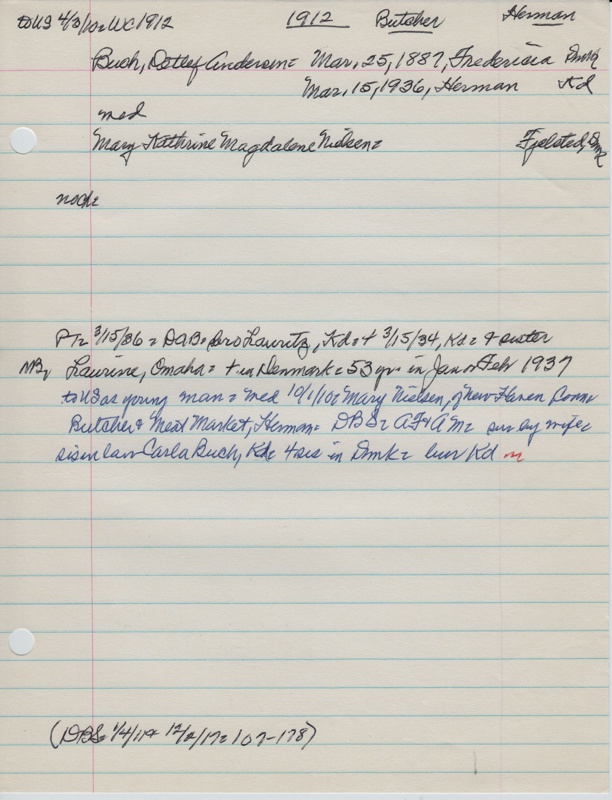 to US 4/3/10= WC 1912 1912 Butcher Herman
Buch, Detlef Andersen= Mar, 25, 1887, Fredericia Dmk
Mar, 15, 1936, Herman Kd
med
Mary Kathrine Magdalene Nielsen= Fjelsted, Dmk
noch=
PT= 3/15/36= DAB= bro Lauritz, Kd= + 3/15/34, Kd= & sister
Laurine, Omaha= + in Denmark= 53 yr= in Jan or Feb 1937
to US as young man= med 10/1/10= Mary Nielsen, of New Haven Conn=
Butcher & Meat Market, Herman= DBS= AF&AM= sur by wife=
sis in law Carla Buch, Kd= 4 sis in Dmk= bur Kd m
(DBS= 1/4/11& 12/2/17= 107-178)